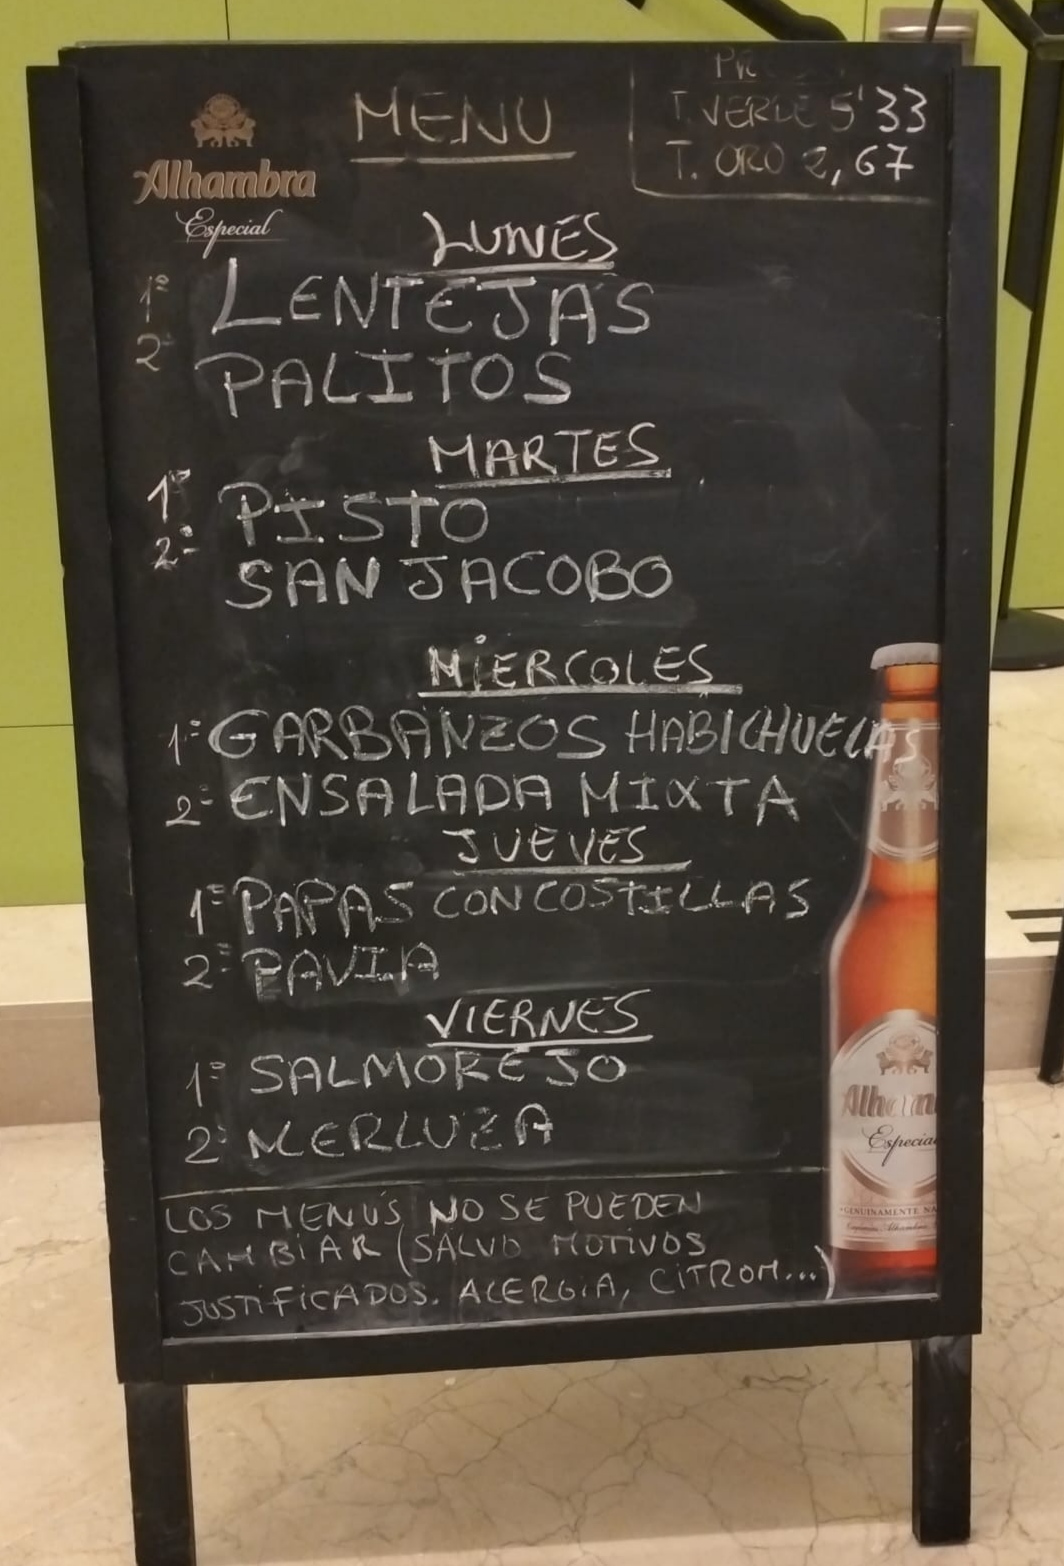 MENU
PR
T. VERDE 5'33
T. ORO 2,67
Alhambra
Especial
LUNES
1º LENTEJAS
2º PALITOS
MARTES
1º PISTO
2º SAN JACOBO
MIERCOLES
1º GARBANZOS HABICHUELAS
2º ENSALADA MIXTA
JUEVES
1º PAPAS CON COSTILLAS
2º PAVIA
VIERNES
1º SALMOREJO
2º MERLUZA
LOS MENÚS NO SE PUEDEN
CAMBIAR (SALVO MOTIVOS
JUSTIFICADOS. ALERGIA, CITROM...)
Alham
Especial
GENUINAMENTE NA